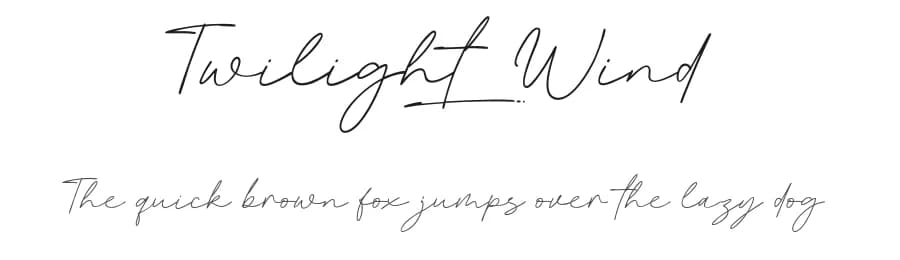 Twilight Wind
The quick brown fox jumps over the lazy dog